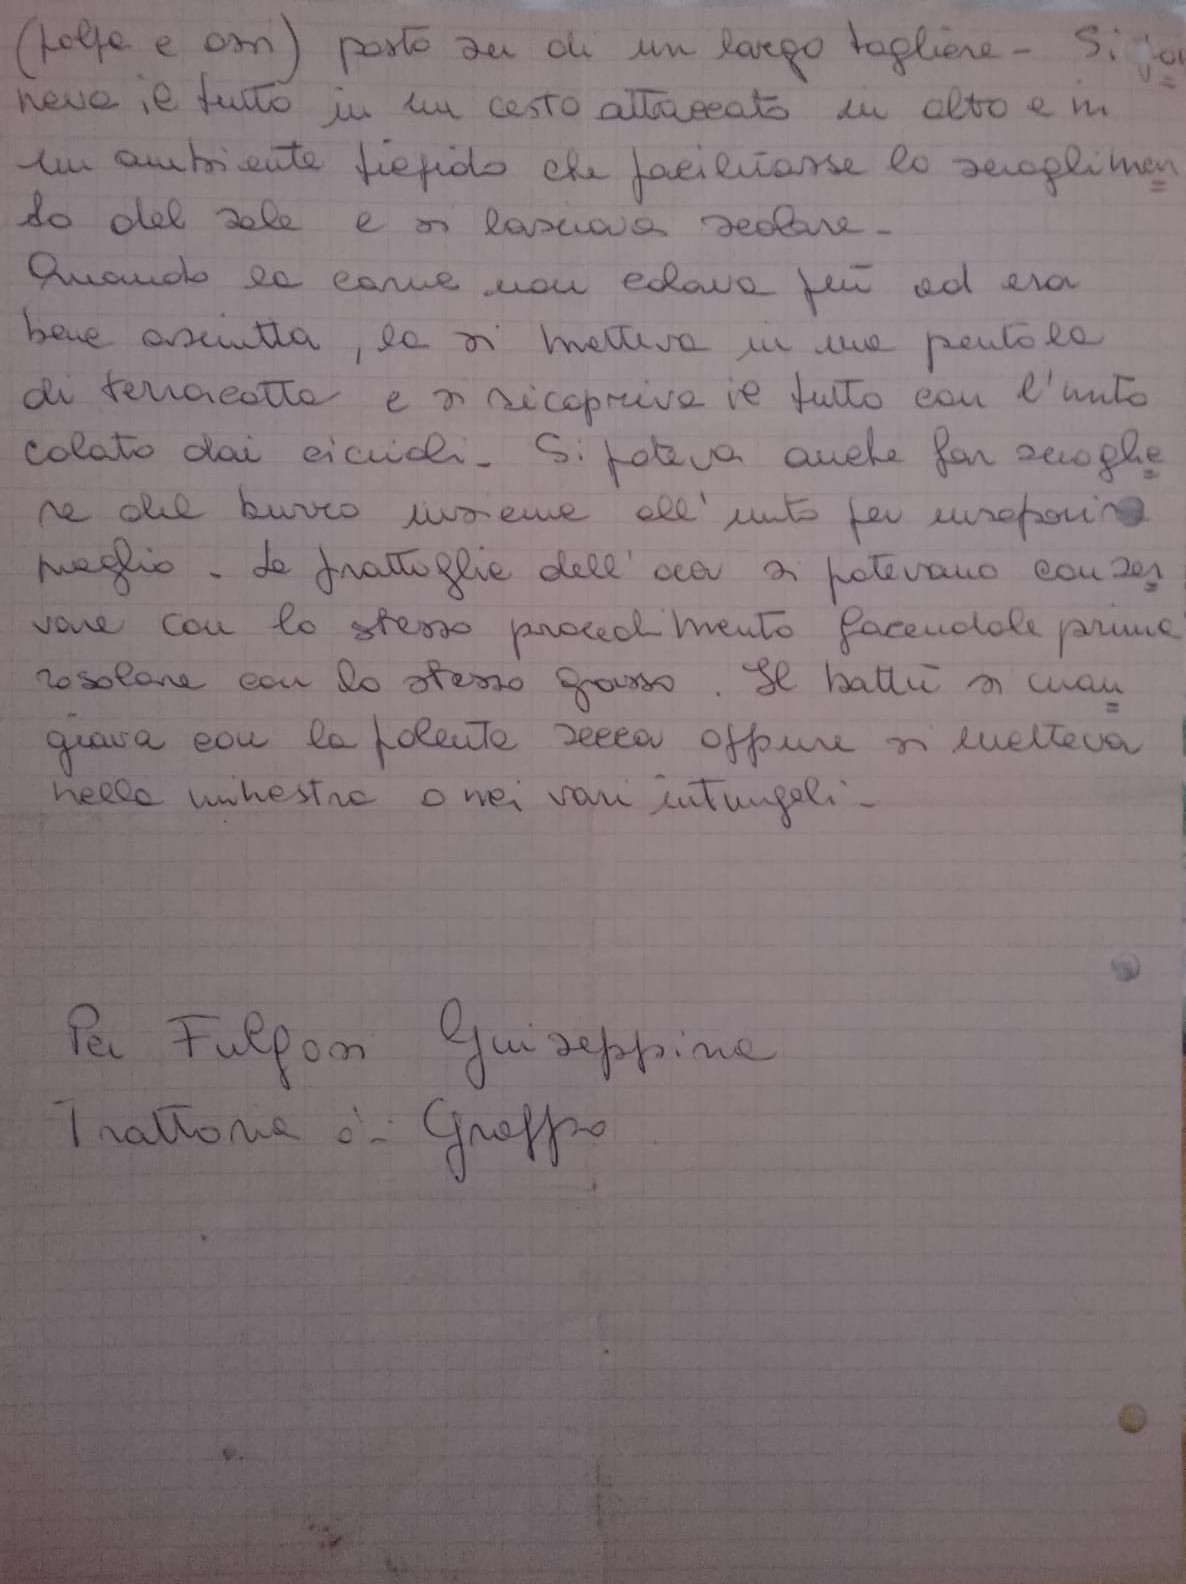 (polpa e ossi) posto su di un largo tagliere - Si po
neva il tutto in un cesto attaccato in alto e in
un ambiente tiepido che facilitasse lo scioglimen
to del sale e si lasciava scolare -
Quando la carne non colava più ed era
bene asciutta, la si metteva in una pentola
di terracotta e si ricopriva il tutto con l'unto
colato dai cicioli - Si poteva anche far scioglie
re del burro insieme all'unto per insaporire
meglio. Le frattaglie dell'oca si potevano conser
vare con lo stesso procedimento facendole prima
rosolare con lo stesso grasso. Il battù si man
giava con la polenta secca oppure si metteva
nella minestra o nei vari intingoli -
Per Fulgosi Giuseppina
Trattoria di Groppo